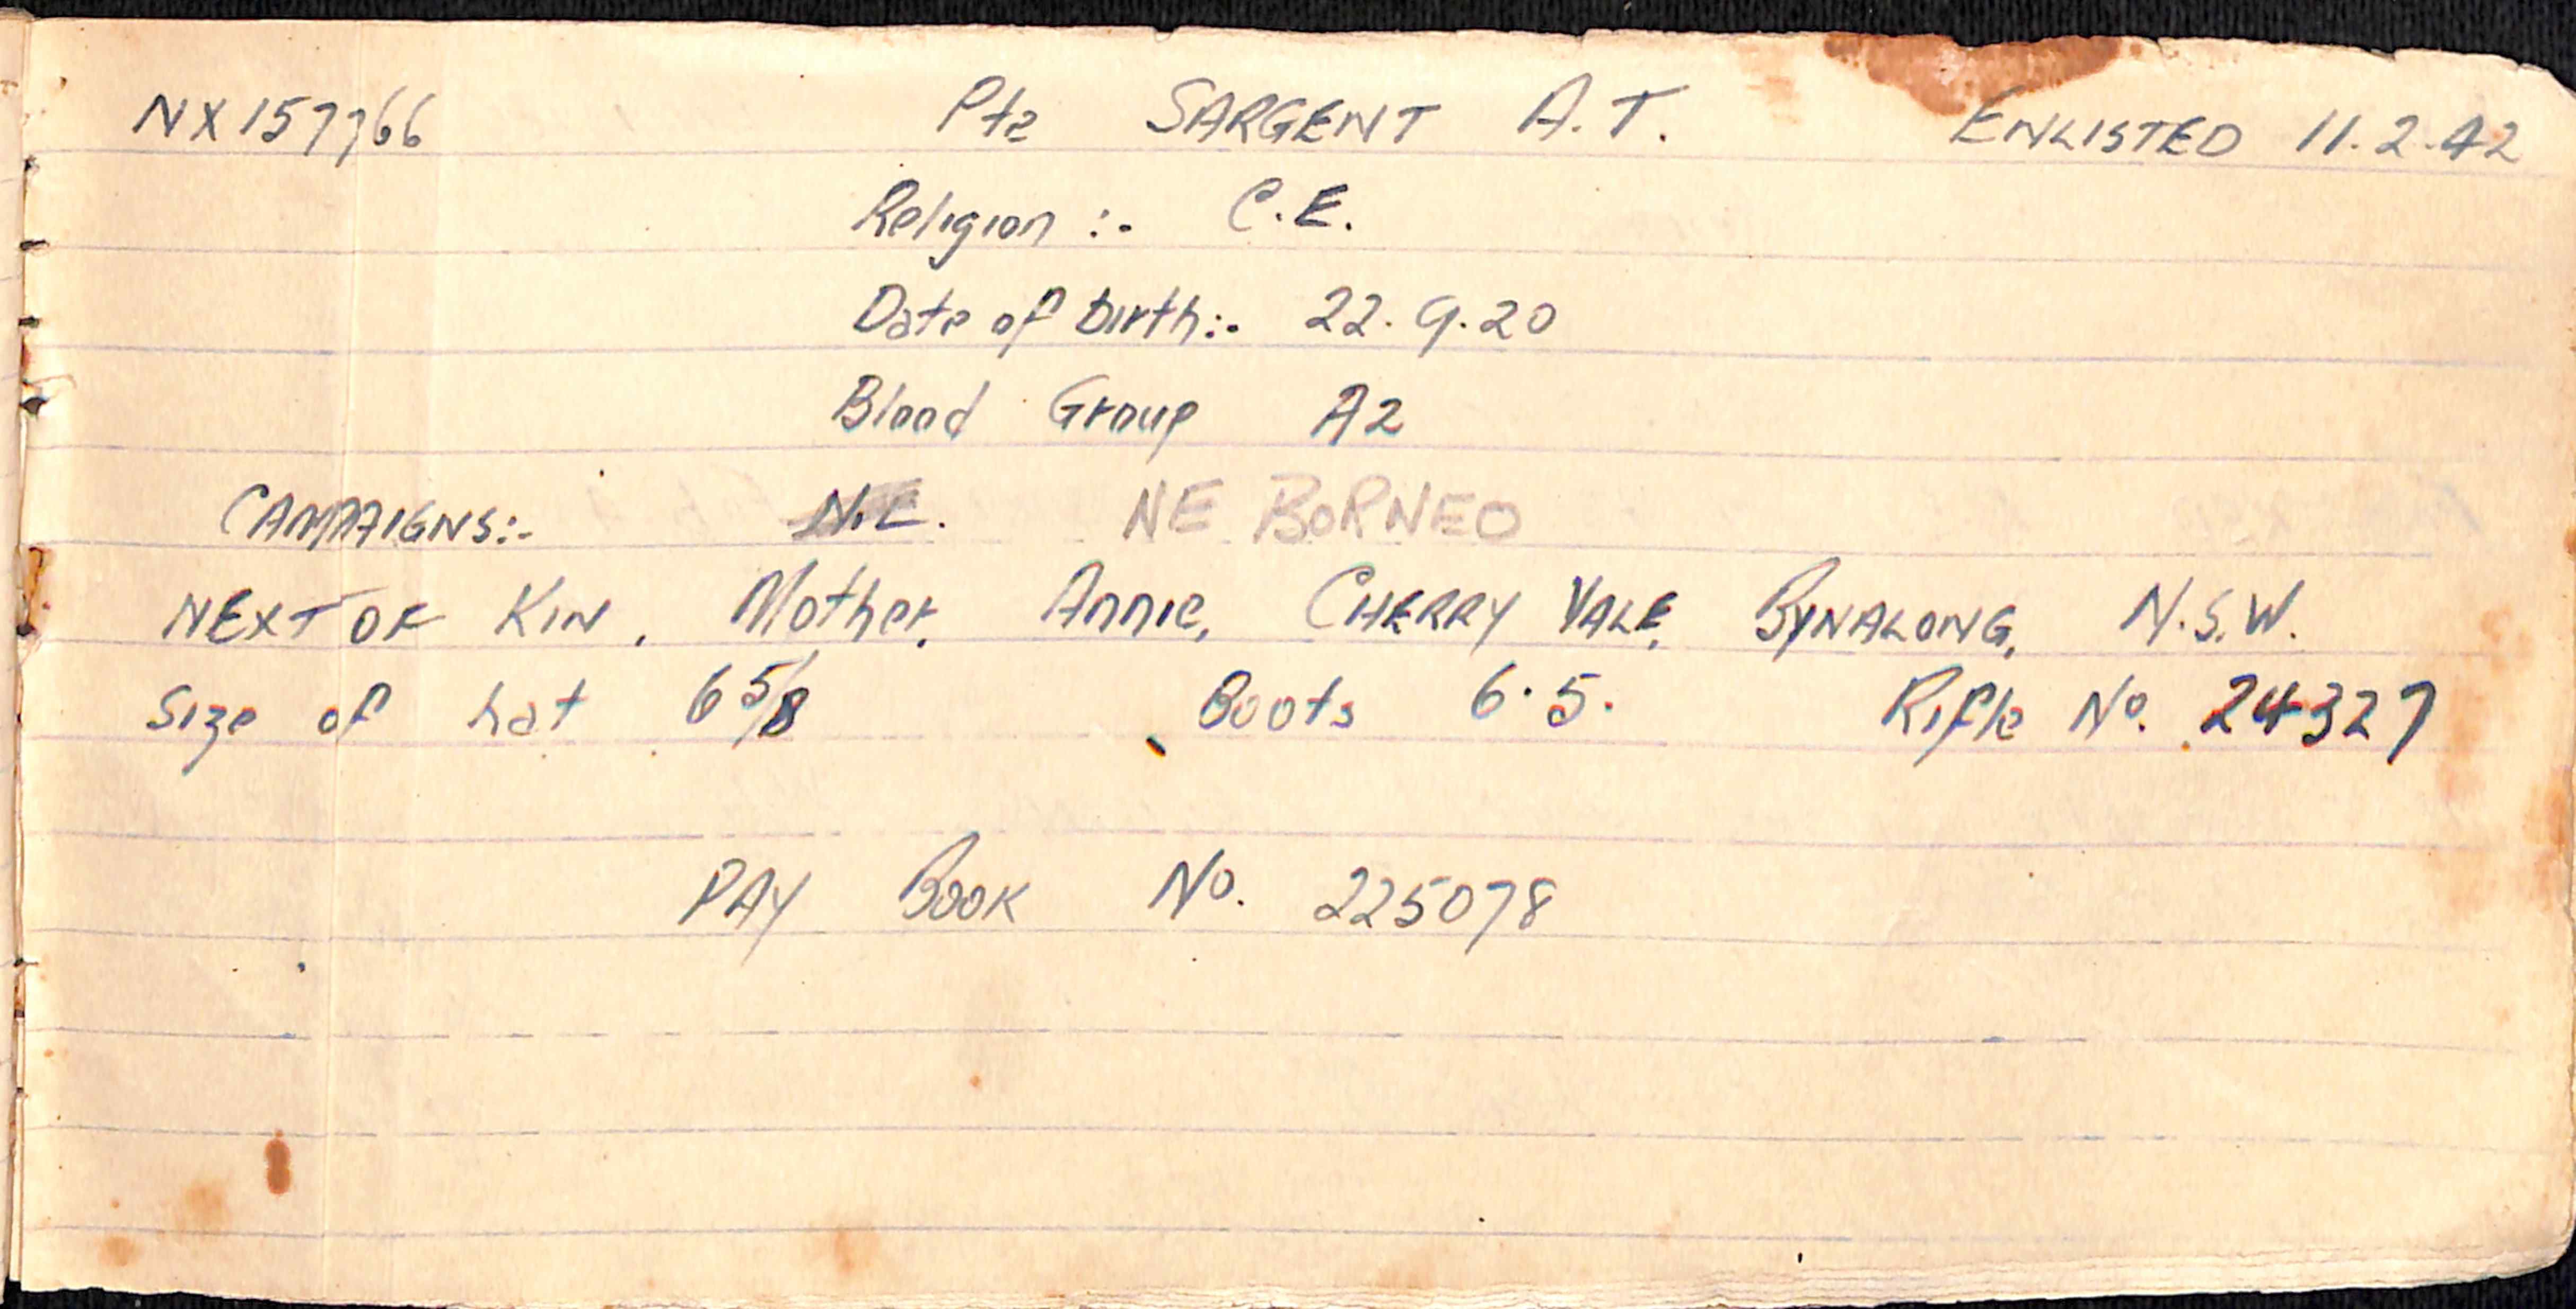 NX157766 Pte SARGENT A.T. ENLISTED 11.2.42
Religion :- C.E.
Date of birth:- 22.9.20
Blood Group A2
CAMPAIGNS:- NE BORNEO
NEXT OF KIN, Mother, Annie, CHERRY VALE, BYNALONG, N.S.W.
Size of hat 6 5/8 Boots 6.5. Rifle No. 24327
PAY BOOK No. 225078